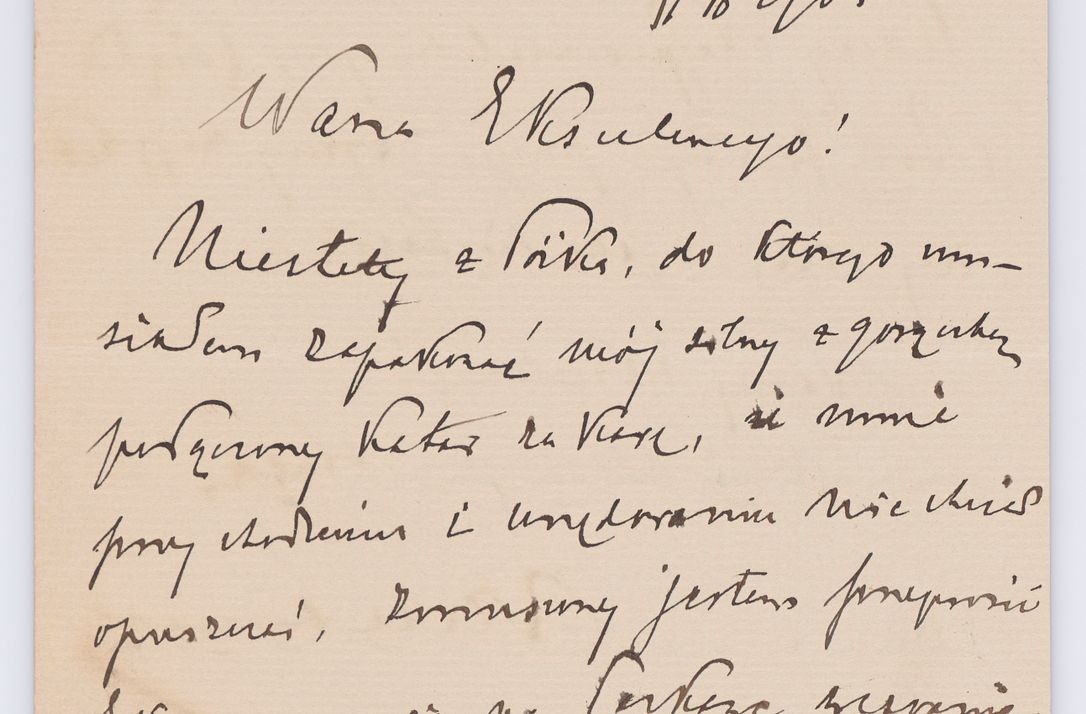 Wasza Ekscelencyo!
Niestety z łóżka, do którego mu-
siałem zapakować mój silny z gorączką
połączony katar za karę, iż mnie
przy chodzeniu i urzędowaniu nie chciał
opuszczać, zmuszony jestem przeprosić